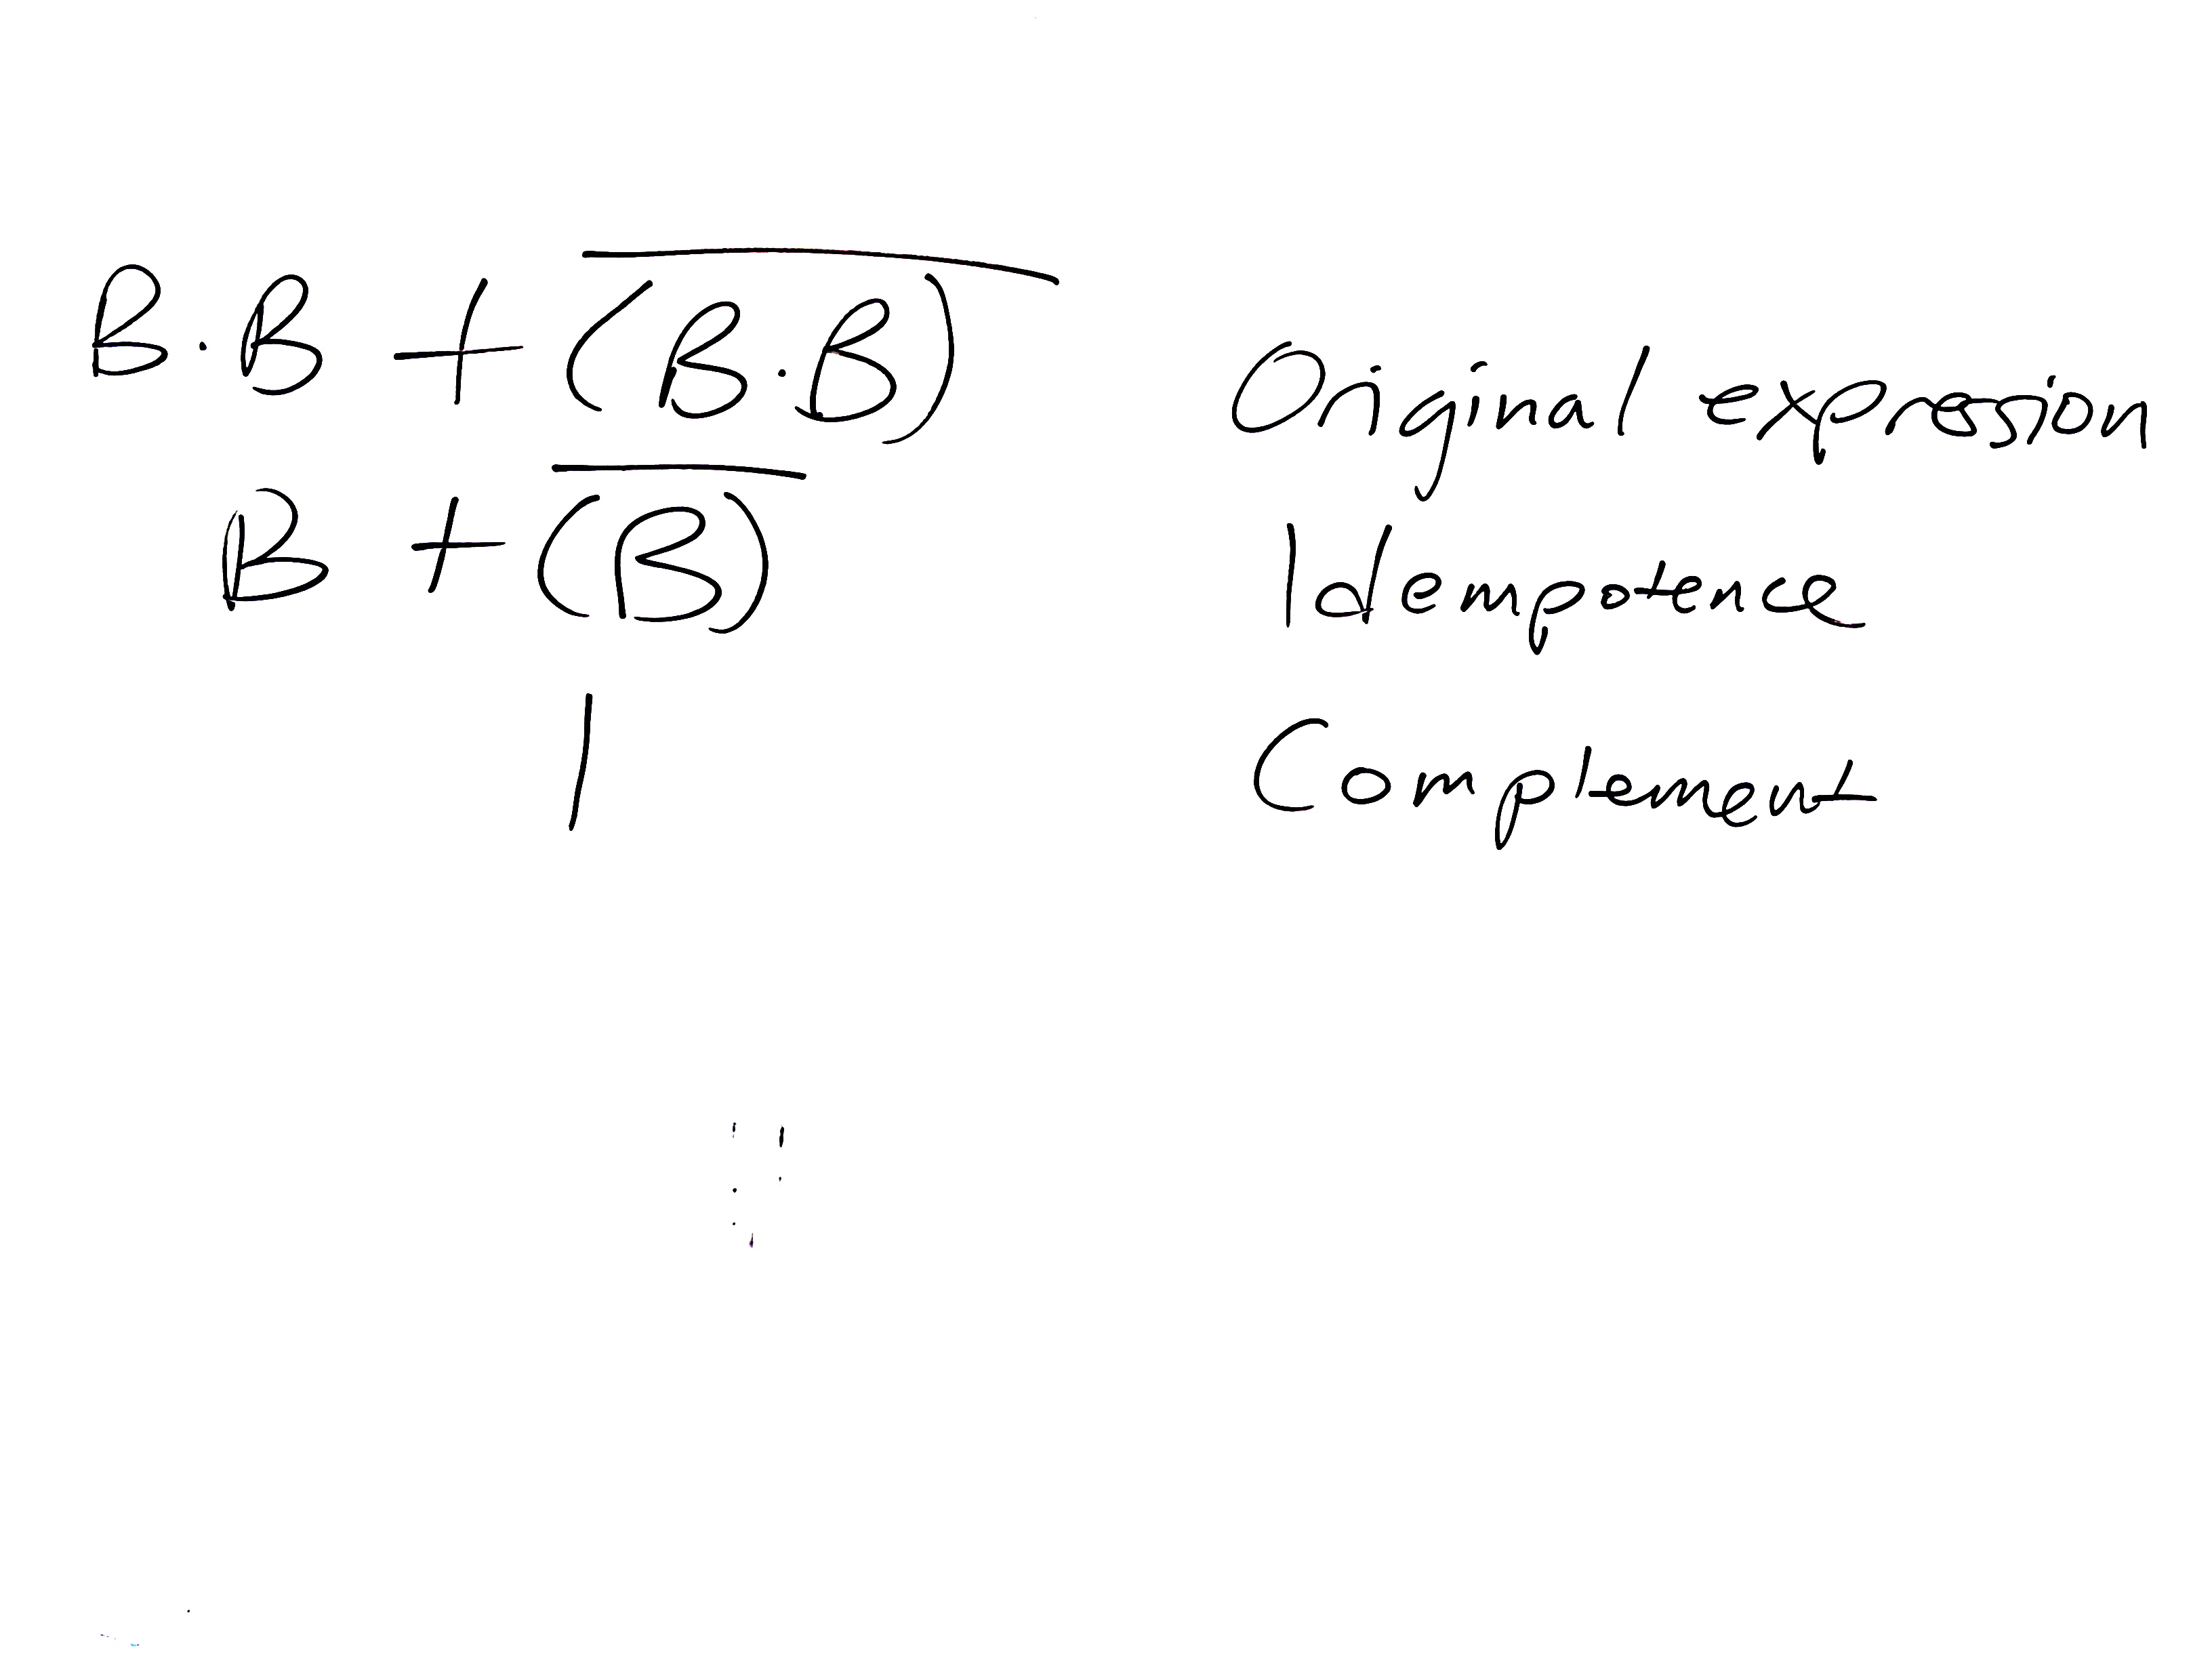 B·B + \overline{(B·B)} Original expression
B + \overline{(B)} Idempotence
1 Complement